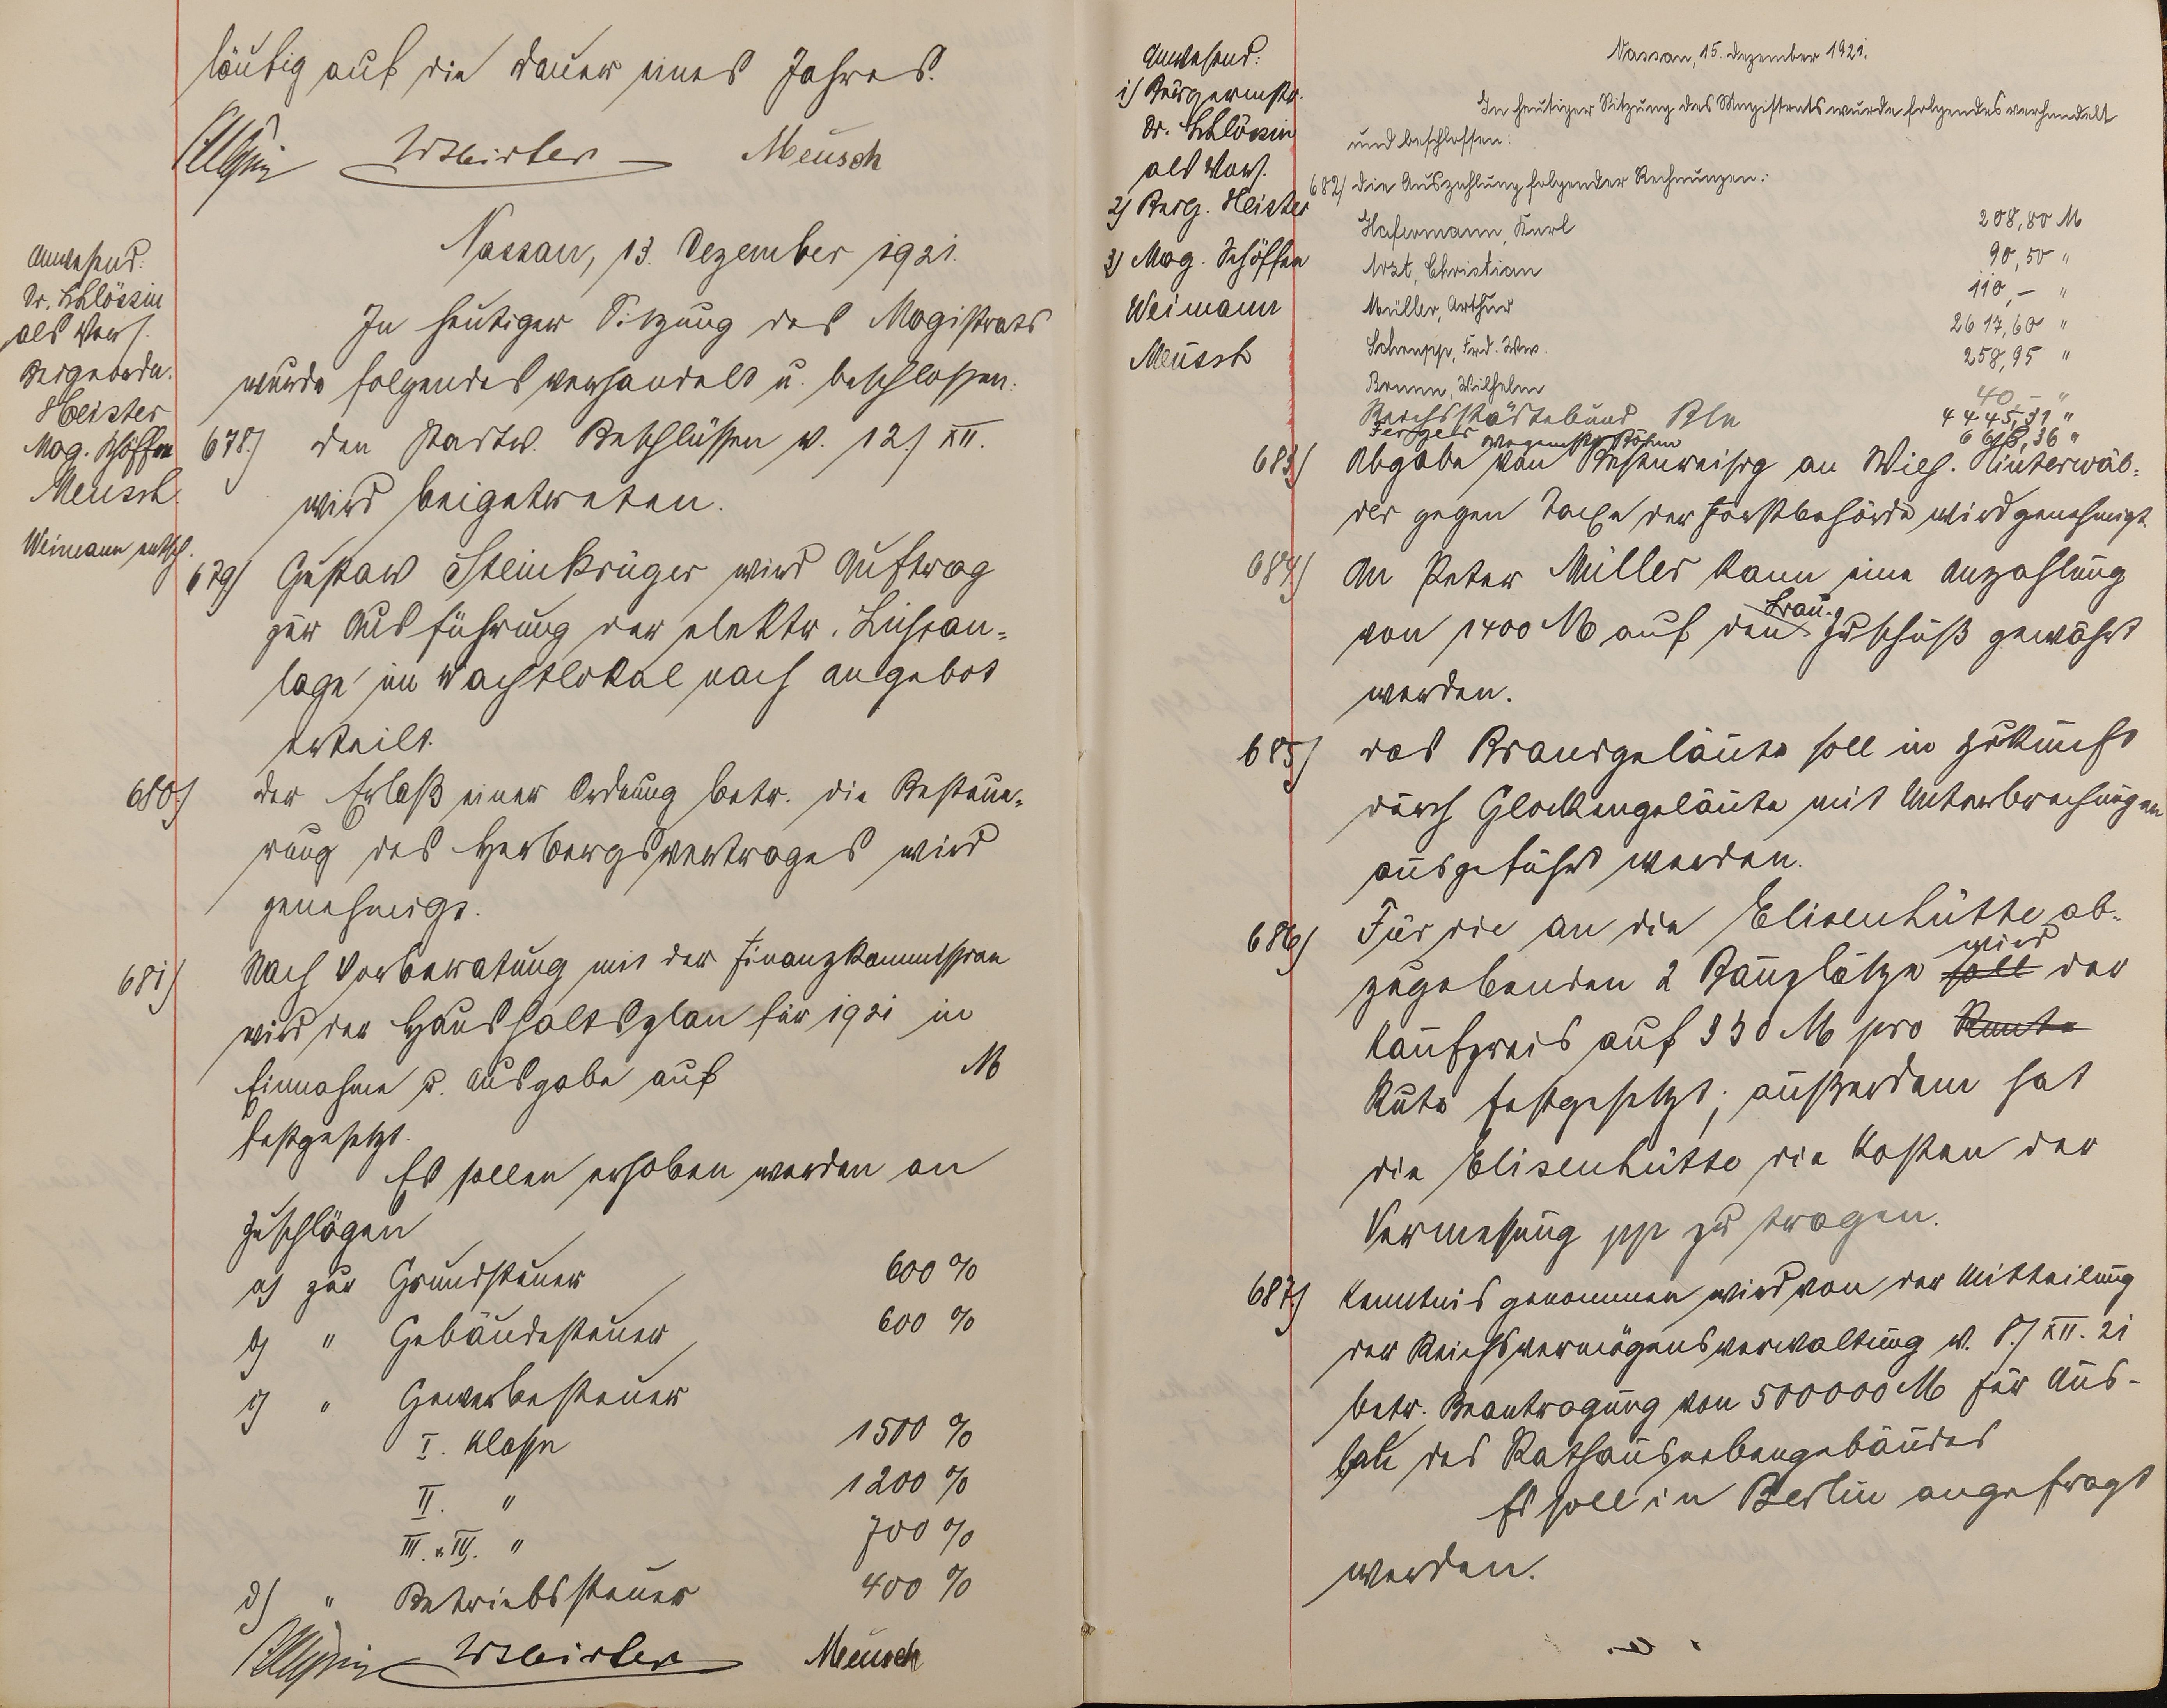 läufig auf die Dauer eines Jahres.
Meusch
Nassau, 13. Dezember 1921.
Anwesend:
Dr. Schlössin
als Vors.
Beigeordn.
Heister
Mag. Schöffen
Meusch
Weimann entsch.
In heutiger Sitzung des Magistrats
wurde folgendes verhandelt u. beschlossen:
678.) Den Stadtv. Beschlüssen v. 12./XII.
wird beigetreten.
679) Gustav Steinkrüger wird Auftrag
zur Ausführung der elektr. Lichtan-
lage im Wachtlokal nach Angebot
erteilt.
680.) Der Erlaß einer Ordnung betr. die Besteue-
rung des Herbergsvertrages wird
genehmigt.
681) Nach Vorberatung mit der Finanzkommission
wird der Haushaltsplan für 1921 in
Einnahme u. Ausgabe auf M
festgesetzt.
Es sollen erhoben werden an
Zuschlägen
a) zur Grundsteuer 600 %
b) " Gebäudesteuer 600 %
c) " Gewerbesteuer
I. Klasse 1500 %
II. " 1200 %
III. u. IV. " 700 %
d) " Betriebssteuer 400 %
Meusch
Anwesend:
1) Bürgermstr.
Dr. Schlössin
als Vors.
2) Beig. Heister
3) Mag. Schöffen
Weimann
Meusch
Nassau, 15. Dezember 1921.
In heutiger Sitzung des Magistrats wurde folgendes verhandelt
und beschlossen:
682) die Auszahlung folgender Rechnungen:
Hafermann, Karl 208,80 M
Arzt, Christian 90,50 "
Müller, Arthur 110,- "
Schrupp, Frd. Ww. 2617,60 "
Bruun, Wilhelm 258,95 "
Reichsstädtebund Bln 40,- "
4445,31 "
683) Abgabe von Besenreisig an Wilh. Hinterwäl-
der gegen Taxe der Forstbehörde wird genehmigt.
684) An Peter Müller kann eine Anzahlung
von 1400 M auf den Zuschuß gewährt
werden.
685) Das Brandgeläute soll in Zukunft
durch Glockengeläute mit Unterbrechungen
ausgeführt werden.
686) Für die an die Elisenhütte ab-
zugebenden 2 Bauplätze soll wird der
Kaufpreis auf 350 M pro Raute
Rute festgesetzt; außerdem hat
die Elisenhütte die Kosten der
Vermessung pp zu tragen.
687.) Kenntnis genommen wird von der Mitteilung
der Reichsvermögensverwaltung v. 8./XII. 21
betr. Beantragung von 500000 M für Aus-
bau des Rathausnebengebäudes
Es soll in Berlin angefragt
werden.